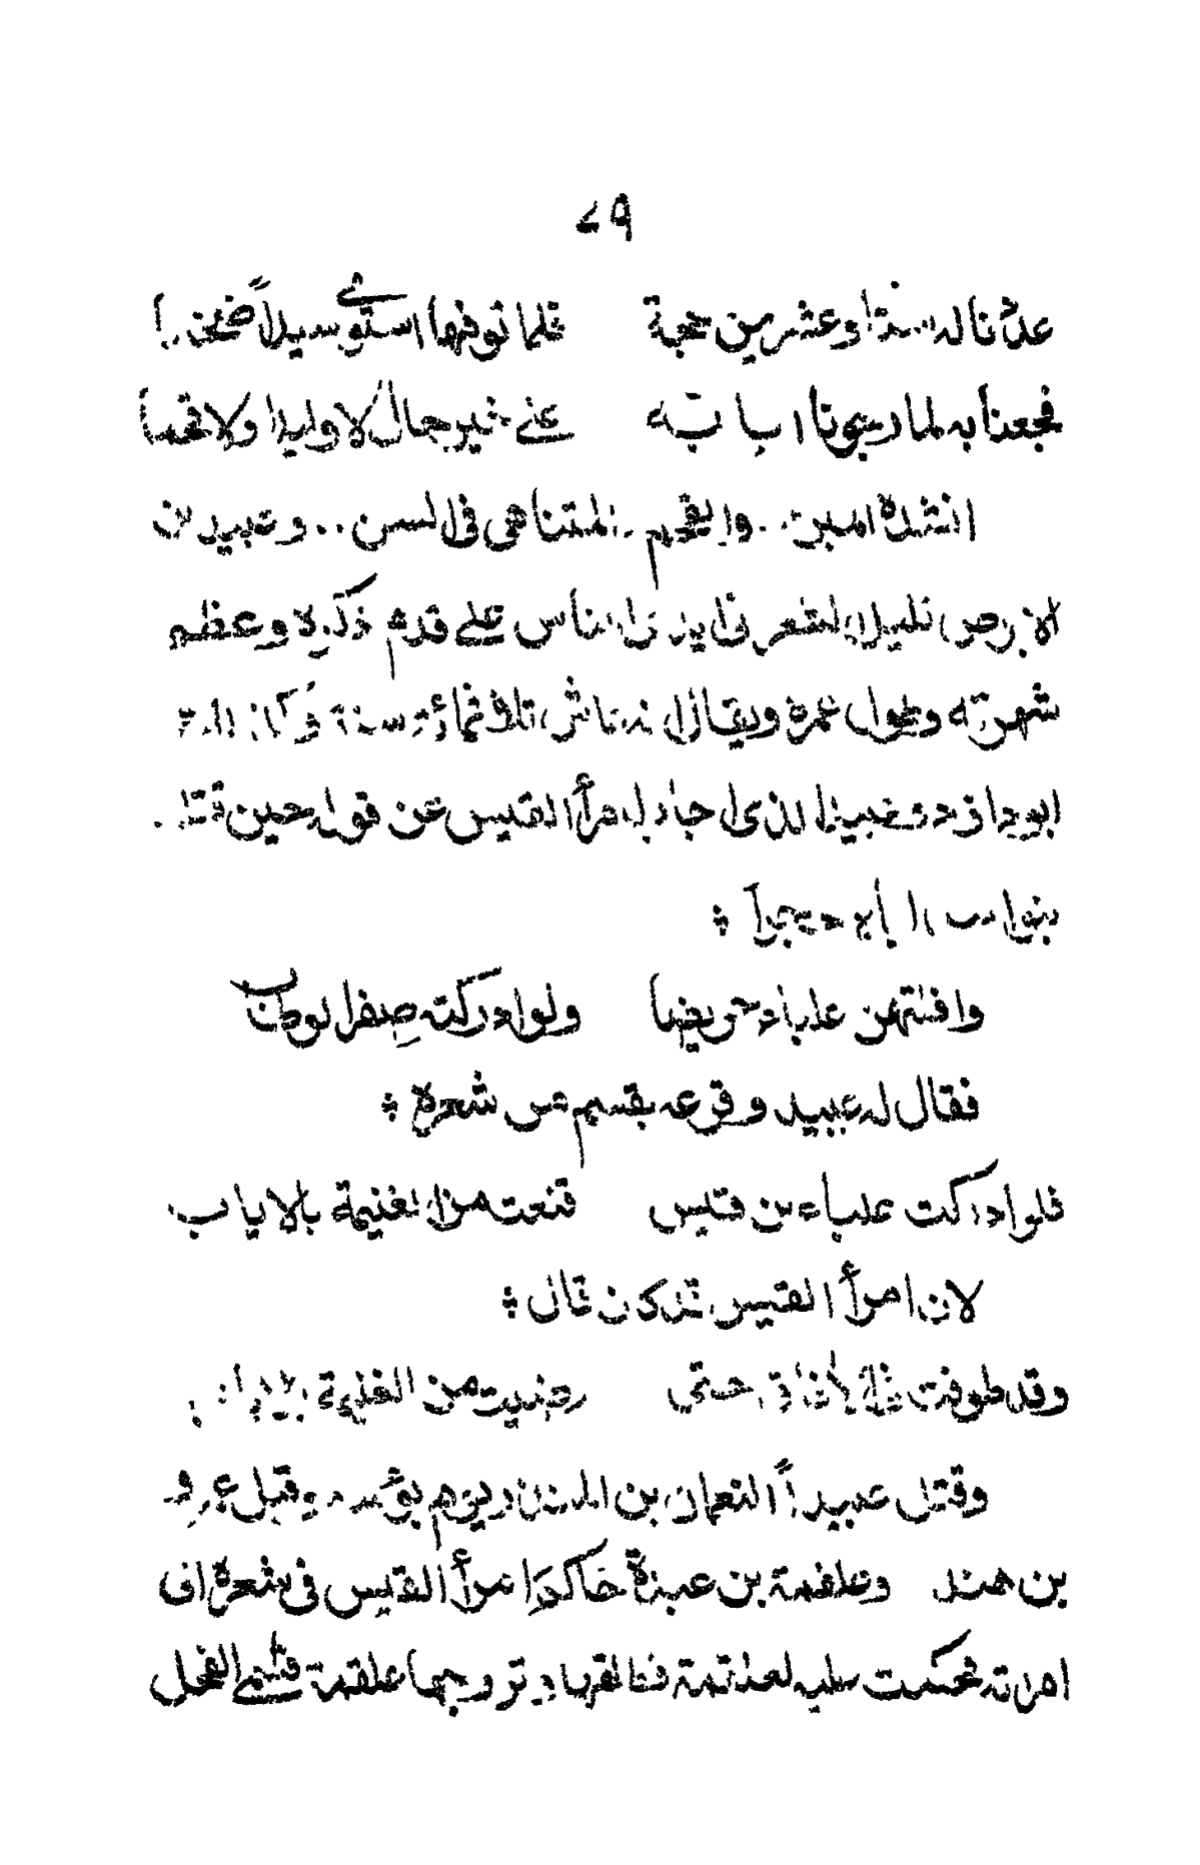 ٦٩
عددنا له ستا وعشرين حجة فلما توفاها استوى سيداً ضخما
فجعنا به لما رجونا ايابه على خير حال لا وليدا ولا قحما
انشده المبرد .. والقحم المتناهى فى السن .. وعبيد بن
الابرص قليل الشعر فى ايدى الناس على قدم ذكره وعظم
شهرته وطول عمره ويقال انه عاش ثلاثمائة سنة وكذلك
ابو دؤاد وعبيد الذى اجاب امرأ القيس عن قوله حين قتلت
بنو اسد اباه حجراً
وافلتهن علباء جريضا ولو ادركته صفر الوطاب
فقال له عبيد وقرعه بقسيم من شعره
فلو ادركت علباء بن قيس قنعت من الغنيمة بالاياب
لان امرأ القيس قد كان قال
وقد طوفت فى الآفاق حتى رضيت من الغنيمة بالاياب
وقتل عبيداً النعمان بن المنذر يوم بؤسه وقيل عمرو
بن هند وعلقمة بن عبدة حاكم امرأ القيس فى شعره الى
امراته فحكمت عليه لعلقمة فطلقها وتزوجها علقمة فسمى الفحل